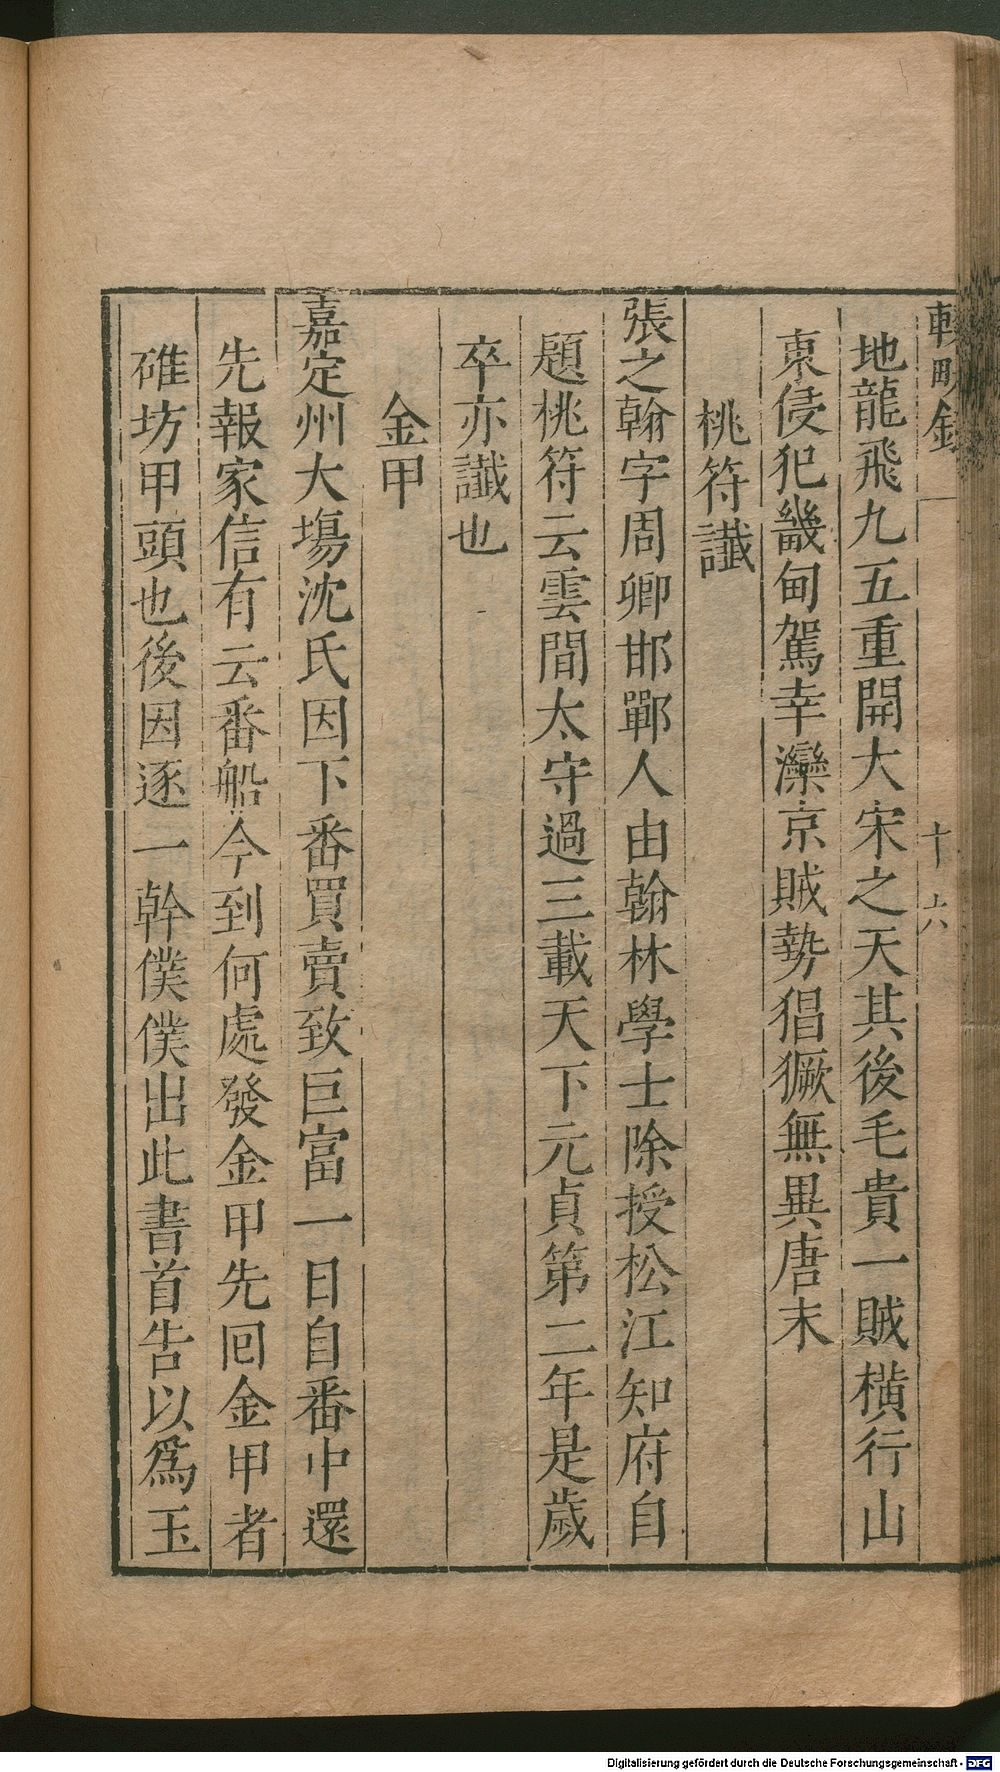 輟畊錄 十六
地龍飛九五重開大宋之天其後毛貴一賊橫行山
東侵犯畿甸駕幸灤京賊勢猖獗無異唐末
桃符讖
張之翰字周卿邯鄲人由翰林學士除授松江知府自
題桃符云雲間太守過三載天下元貞第二年是歲
卒亦讖也
金甲
嘉定州大塲沈氏因下番買賣致巨富一日自番中還
先報家信有云番船今到何處發金甲先回金甲者
碓坊甲頭也後因逐一幹僕僕出此書首告以爲玉
Digitalisierung gefördert durch die Deutsche Forschungsgemeinschaft - DFG